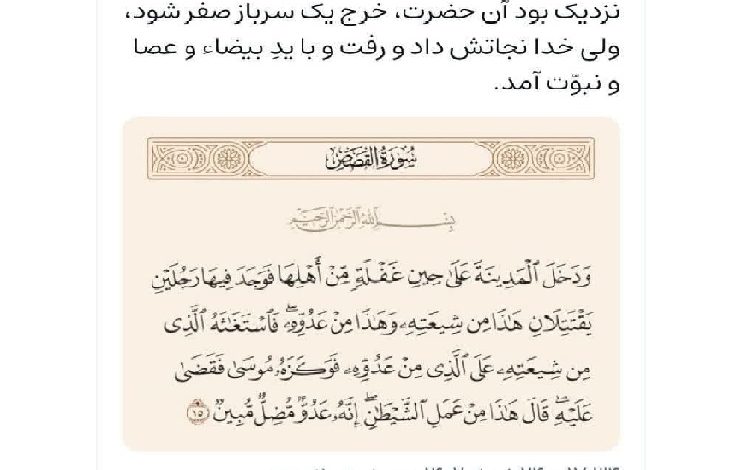 نزدیک بود آن حضرت، خرج یک سرباز صفر شود،
ولی خدا نجاتش داد و رفت و با یدِ بیضاء و عصا
و نبوّت آمد.
سُورَةُ القَصَصِ
بِسْمِ اللَّهِ الرَّحْمَٰنِ الرَّحِيمِ
وَدَخَلَ ٱلْمَدِينَةَ عَلَىٰ حِينِ غَفْلَةٍ مِّنْ أَهْلِهَا فَوَجَدَ فِيهَا رَجُلَيْنِ
يَقْتَتِلَانِ هَٰذَا مِن شِيعَتِهِۦ وَهَٰذَا مِنْ عَدُوِّهِۦۖ فَٱسْتَغَٰثَهُ ٱلَّذِى
مِن شِيعَتِهِۦ عَلَى ٱلَّذِى مِنْ عَدُوِّهِۦ فَوَكَزَهُۥ مُوسَىٰ فَقَضَىٰ
عَلَيْهِۖ قَالَ هَٰذَا مِنْ عَمَلِ ٱلشَّيْطَٰنِۖ إِنَّهُۥ عَدُوٌّ مُّضِلٌّ مُّبِينٌ ١٥